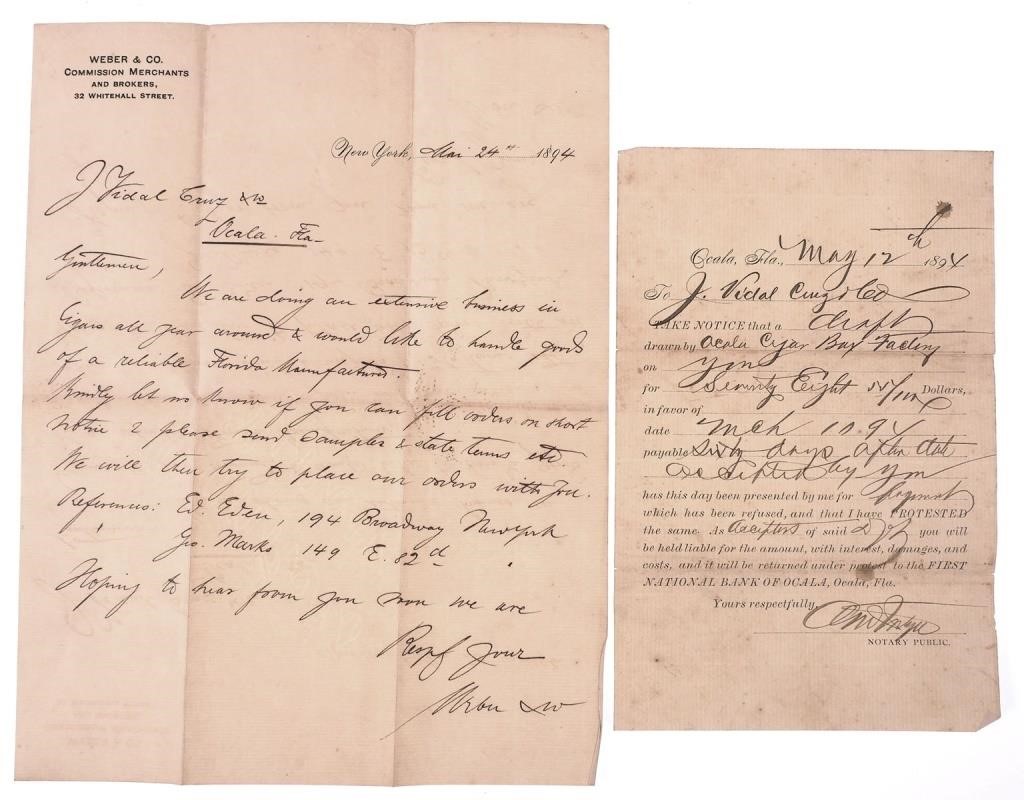 WEBER & CO.
COMMISSION MERCHANTS
AND BROKERS,
32 WHITEHALL STREET.
New York, Mai 24th 1894
J Vidal Cruz & Co
Ocala. Fla
Gentlemen,
We are doing an extensive business in
Cigars all year around & would like to handle goods
of a reliable Florida Manufacturer.
Kindly let us know if you can fill orders on short
notice & please send samples & state terms etc.
We will then try to place our orders with you.
References: Ed. Eden, 194 Broadway New York
Geo. Marks 149 E. 82d "
Hoping to hear from you soon we are
Respf your
Weber & Co
Ocala, Fla., May 12th 1894
To J. Vidal Cruz & Co
TAKE NOTICE that a draft
drawn by Ocala Cigar Box Factory
on you
for Seventy Eight Dollars,
in favor of
date Mch 10 94
payable sixty days after date
accepted by you
has this day been presented by me for payment
which has been refused, and that I have PROTESTED
the same. As acceptors of said dft you will
be held liable for the amount, with interest, damages, and
costs, and it will be returned under protest to the FIRST
NATIONAL BANK OF OCALA, Ocala, Fla.
Yours respectfully,
NOTARY PUBLIC.